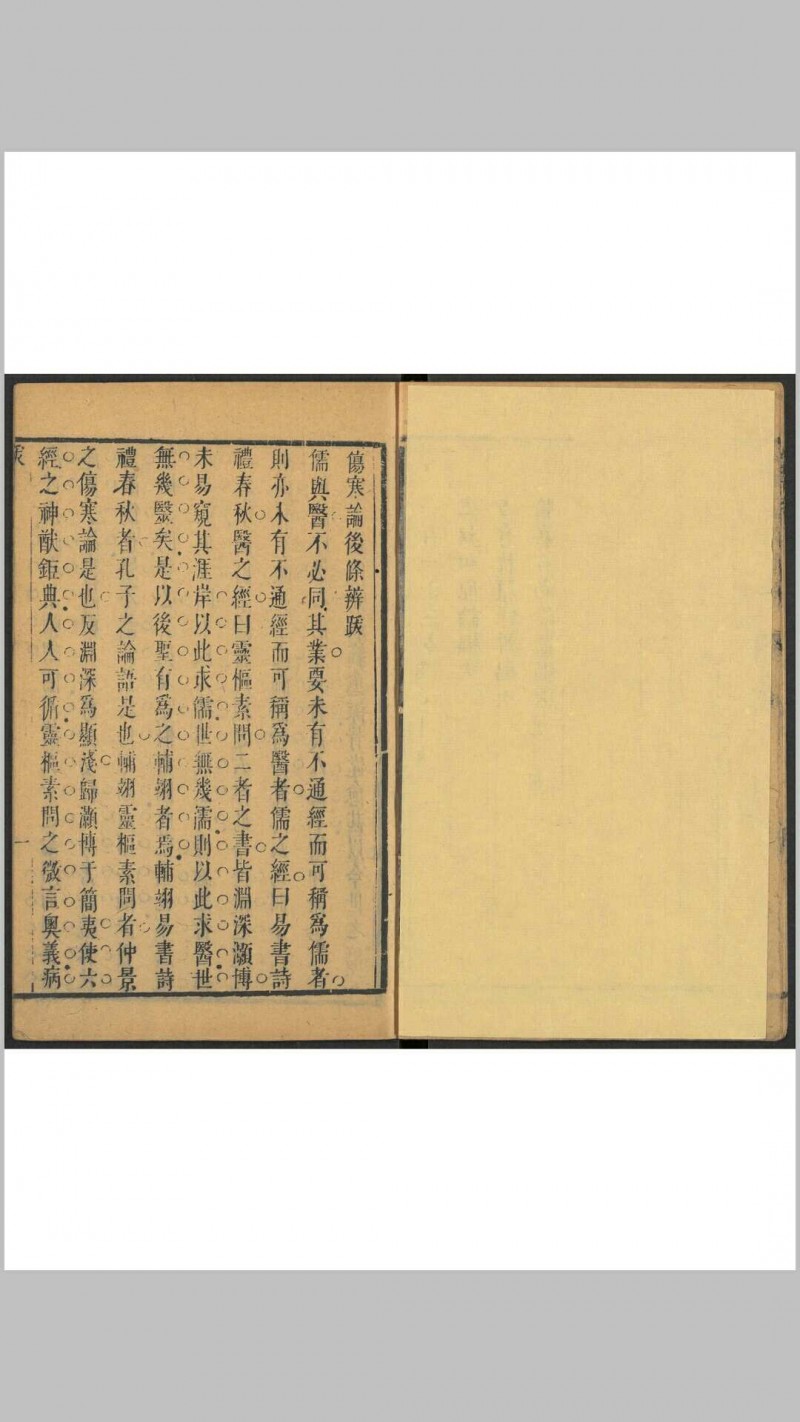 傷寒論後條辨跋
儒與醫不必同其業要未有不通經而可稱為儒者
則亦未有不通經而可稱為醫者儒之經曰易書詩
禮春秋醫之經曰靈樞素問二者之書皆淵深灝博
未易窺其涯岸以此求儒世無幾儒則以此求醫世
無幾醫矣是以後聖有為之輔翊者焉輔翊易書詩
禮春秋者孔子之論語是也輔翊靈樞素問者仲景
之傷寒論是也反淵深為顯淺歸灝博于簡夷使六
經之神猷鉅典人人可循靈樞素問之微言奧義病
跋
一